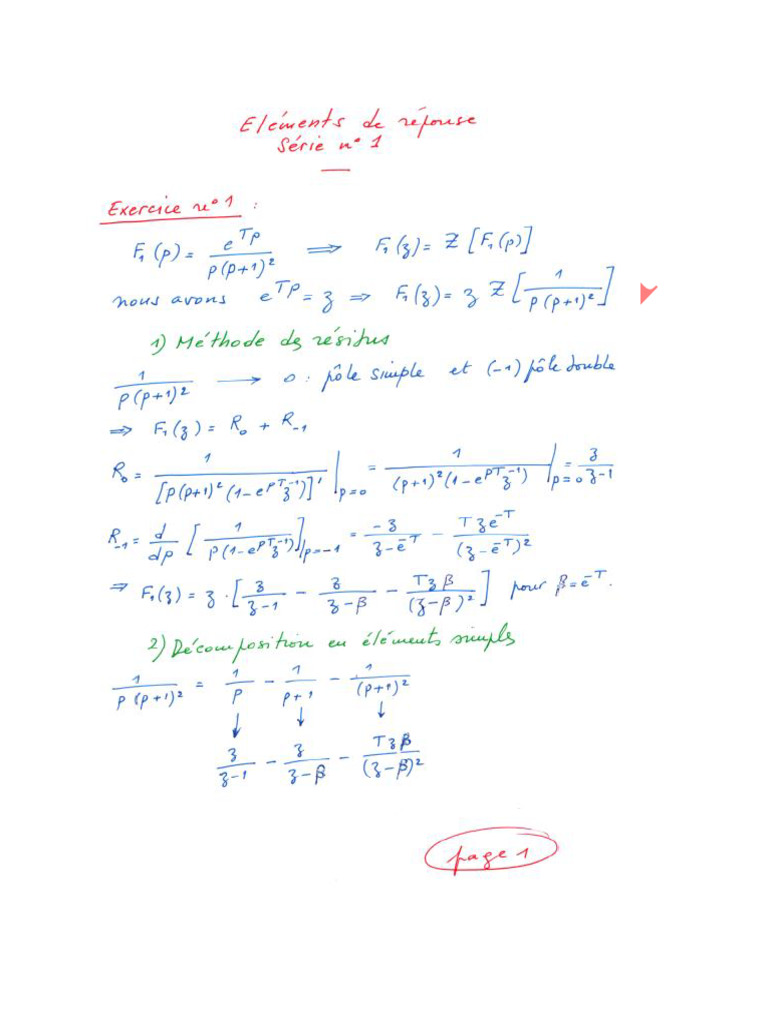 Eléments de réponse
Série n° 1
Exercice n° 1 :
F₁(p) = e^{Tp} / p(p+1)² ⟹ F₁(z) = Z [F₁(p)]
nous avons e^{Tp} = z ⟹ F₁(z) = z Z [1 / p(p+1)²]
1) Méthode des résidus
1 / p(p+1)² ⟶ 0 : pôle simple et (-1) pôle double
⟹ F₁(z) = R₀ + R₋₁
R₀ = 1 / [p(p+1)²(1-e^{pT}z⁻¹)]' |p=0 = 1 / (p+1)²(1-e^{pT}z⁻¹) |p=0 = z / z-1
R₋₁ = d/dp [1 / p(1-e^{pT}z⁻¹)] |p=-1 = -z / z-e^{-T} - Tze^{-T} / (z-e^{-T})²
⟹ F₁(z) = z · [z / z-1 - z / z-β - Tzβ / (z-β)²] pour β = e^{-T}.
2) Décomposition en éléments simples
1 / p(p+1)² = 1 / p - 1 / p+1 - 1 / (p+1)²
↓ ↓ ↓
z / z-1 - z / z-β - Tzβ / (z-β)²
page 1